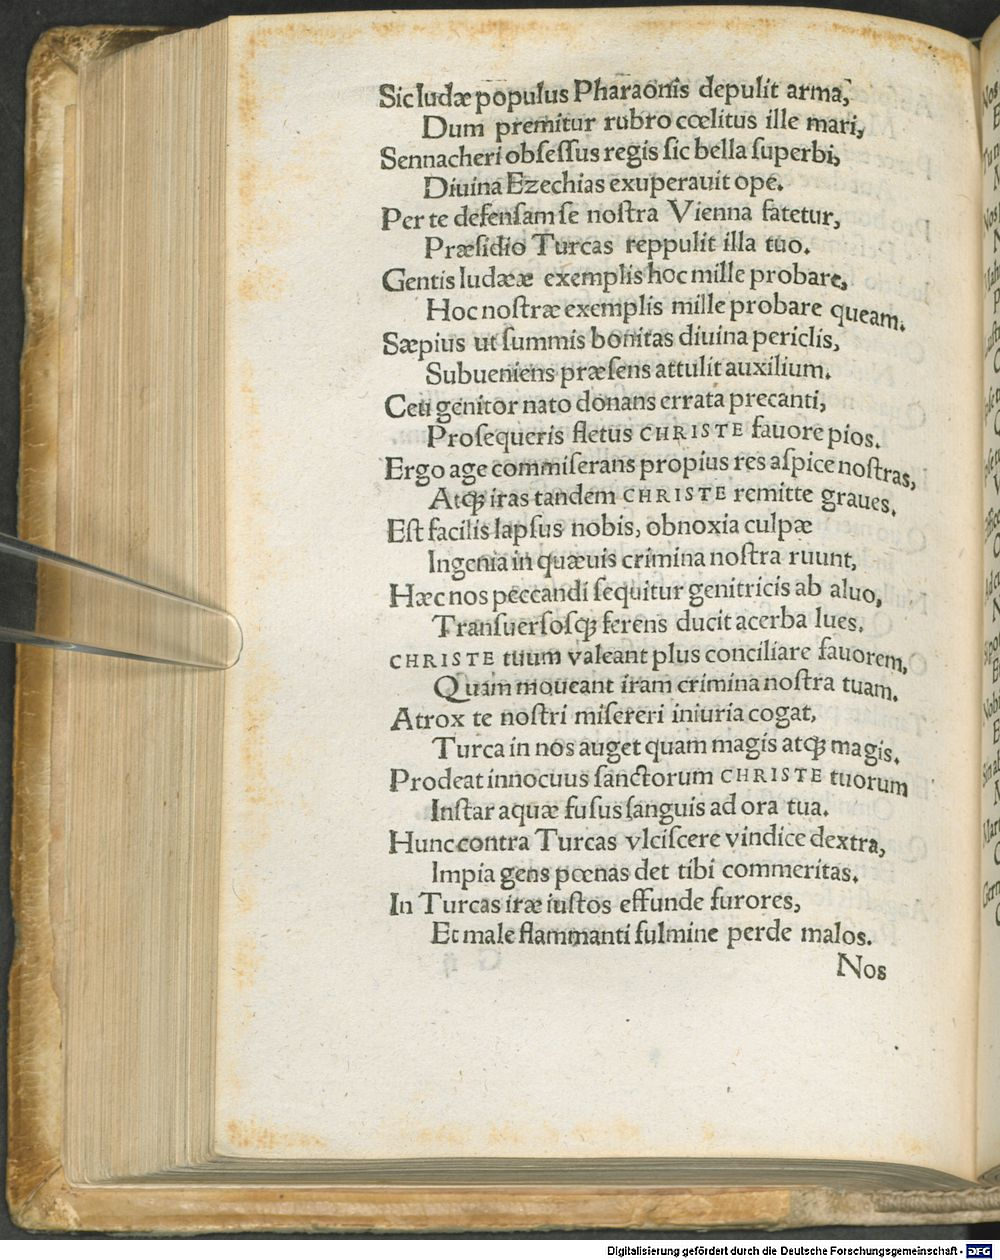 Sic Iudæ populus Pharaonis depulit arma,
Dum premitur rubro cœlitus ille mari,
Sennacheri obſeſſus regis ſic bella ſuperbi,
Diuina Ezechias exuperauit ope.
Per te defenſam ſe noſtra Vienna fatetur,
Præſidio Turcas reppulit illa tuo.
Gentis Iudææ exemplis hoc mille probare,
Hoc noſtræ exemplis mille probare queam.
Sæpius ut ſummis bonitas diuina periclis,
Subueniens præſens attulit auxilium.
Ceu genitor nato donans errata precanti,
Proſequeris fletus CHRISTE fauore pios.
Ergo age commiſerans propius res aſpice noſtras,
Atqꝫ iras tandem CHRISTE remitte graues.
Eſt facilis lapſus nobis, obnoxia culpæ
Ingenia in quæuis crimina noſtra ruunt,
Hæc nos peccandi ſequitur genitricis ab aluo,
Tranſuerſoſqꝫ ferens ducit acerba lues.
CHRISTE tuum valeant plus conciliare fauorem,
Quam moueant iram crimina noſtra tuam.
Atrox te noſtri miſereri iniuria cogat,
Turca in nos auget quam magis atqꝫ magis.
Prodeat innocuus ſanctorum CHRISTE tuorum
Inſtar aquæ fuſus ſanguis ad ora tua.
Hunc contra Turcas vlciſcere vindice dextra,
Impia gens pœnas det tibi commeritas.
In Turcas iræ iuſtos effunde furores,
Et male flammanti fulmine perde malos.
Nos
Digitalisierung gefördert durch die Deutsche Forschungsgemeinschaft - DFG